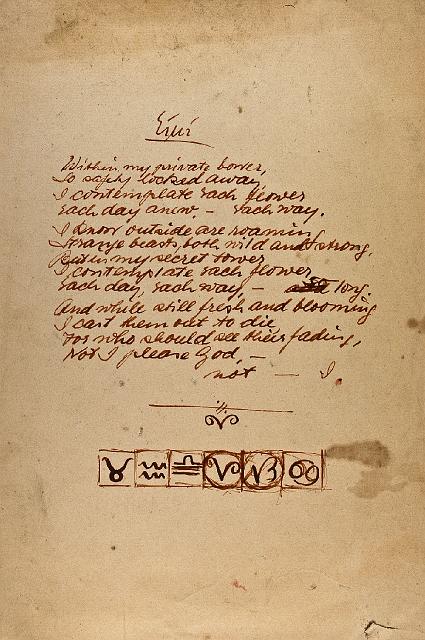 Within my private bower,
So safely locked away,
I contemplate each flower
Each day anew, – each way.
I know outside are roaming
Strange beasts, both wild and strong,
But in my secret tower
I contemplate each flower
Each day, each way – so long.
And while still fresh and blooming
I cast them out to die
For who should see their fading,
Not I please God, –
not – I.
♉ ♒ ♎ ♈ ♑ ♋